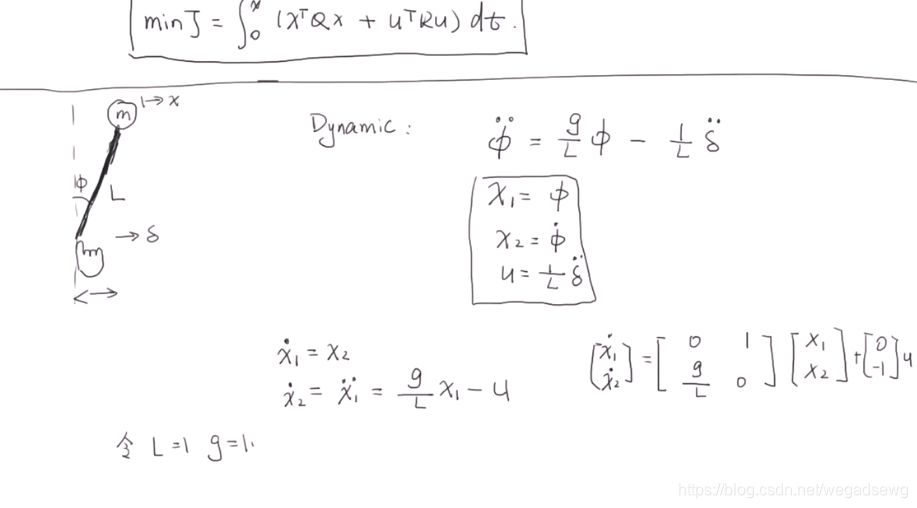 min J = ∫₀^∞ (xᵀQx + uᵀRu) dt.
m ↦ x
Dynamic: φ̈ = g/L φ − 1/L δ̈
φ
L
→ δ
x₁ = φ
x₂ = φ̇
u = 1/L δ̈
ẋ₁ = x₂
ẋ₂ = ẍ₁ = g/L x₁ − u
[ẋ₁ ẋ₂] = [0 1 g/L 0] [x₁ x₂] + [0 -1] u
令 L=1 g=1.
https://blog.csdn.net/wegadsewg